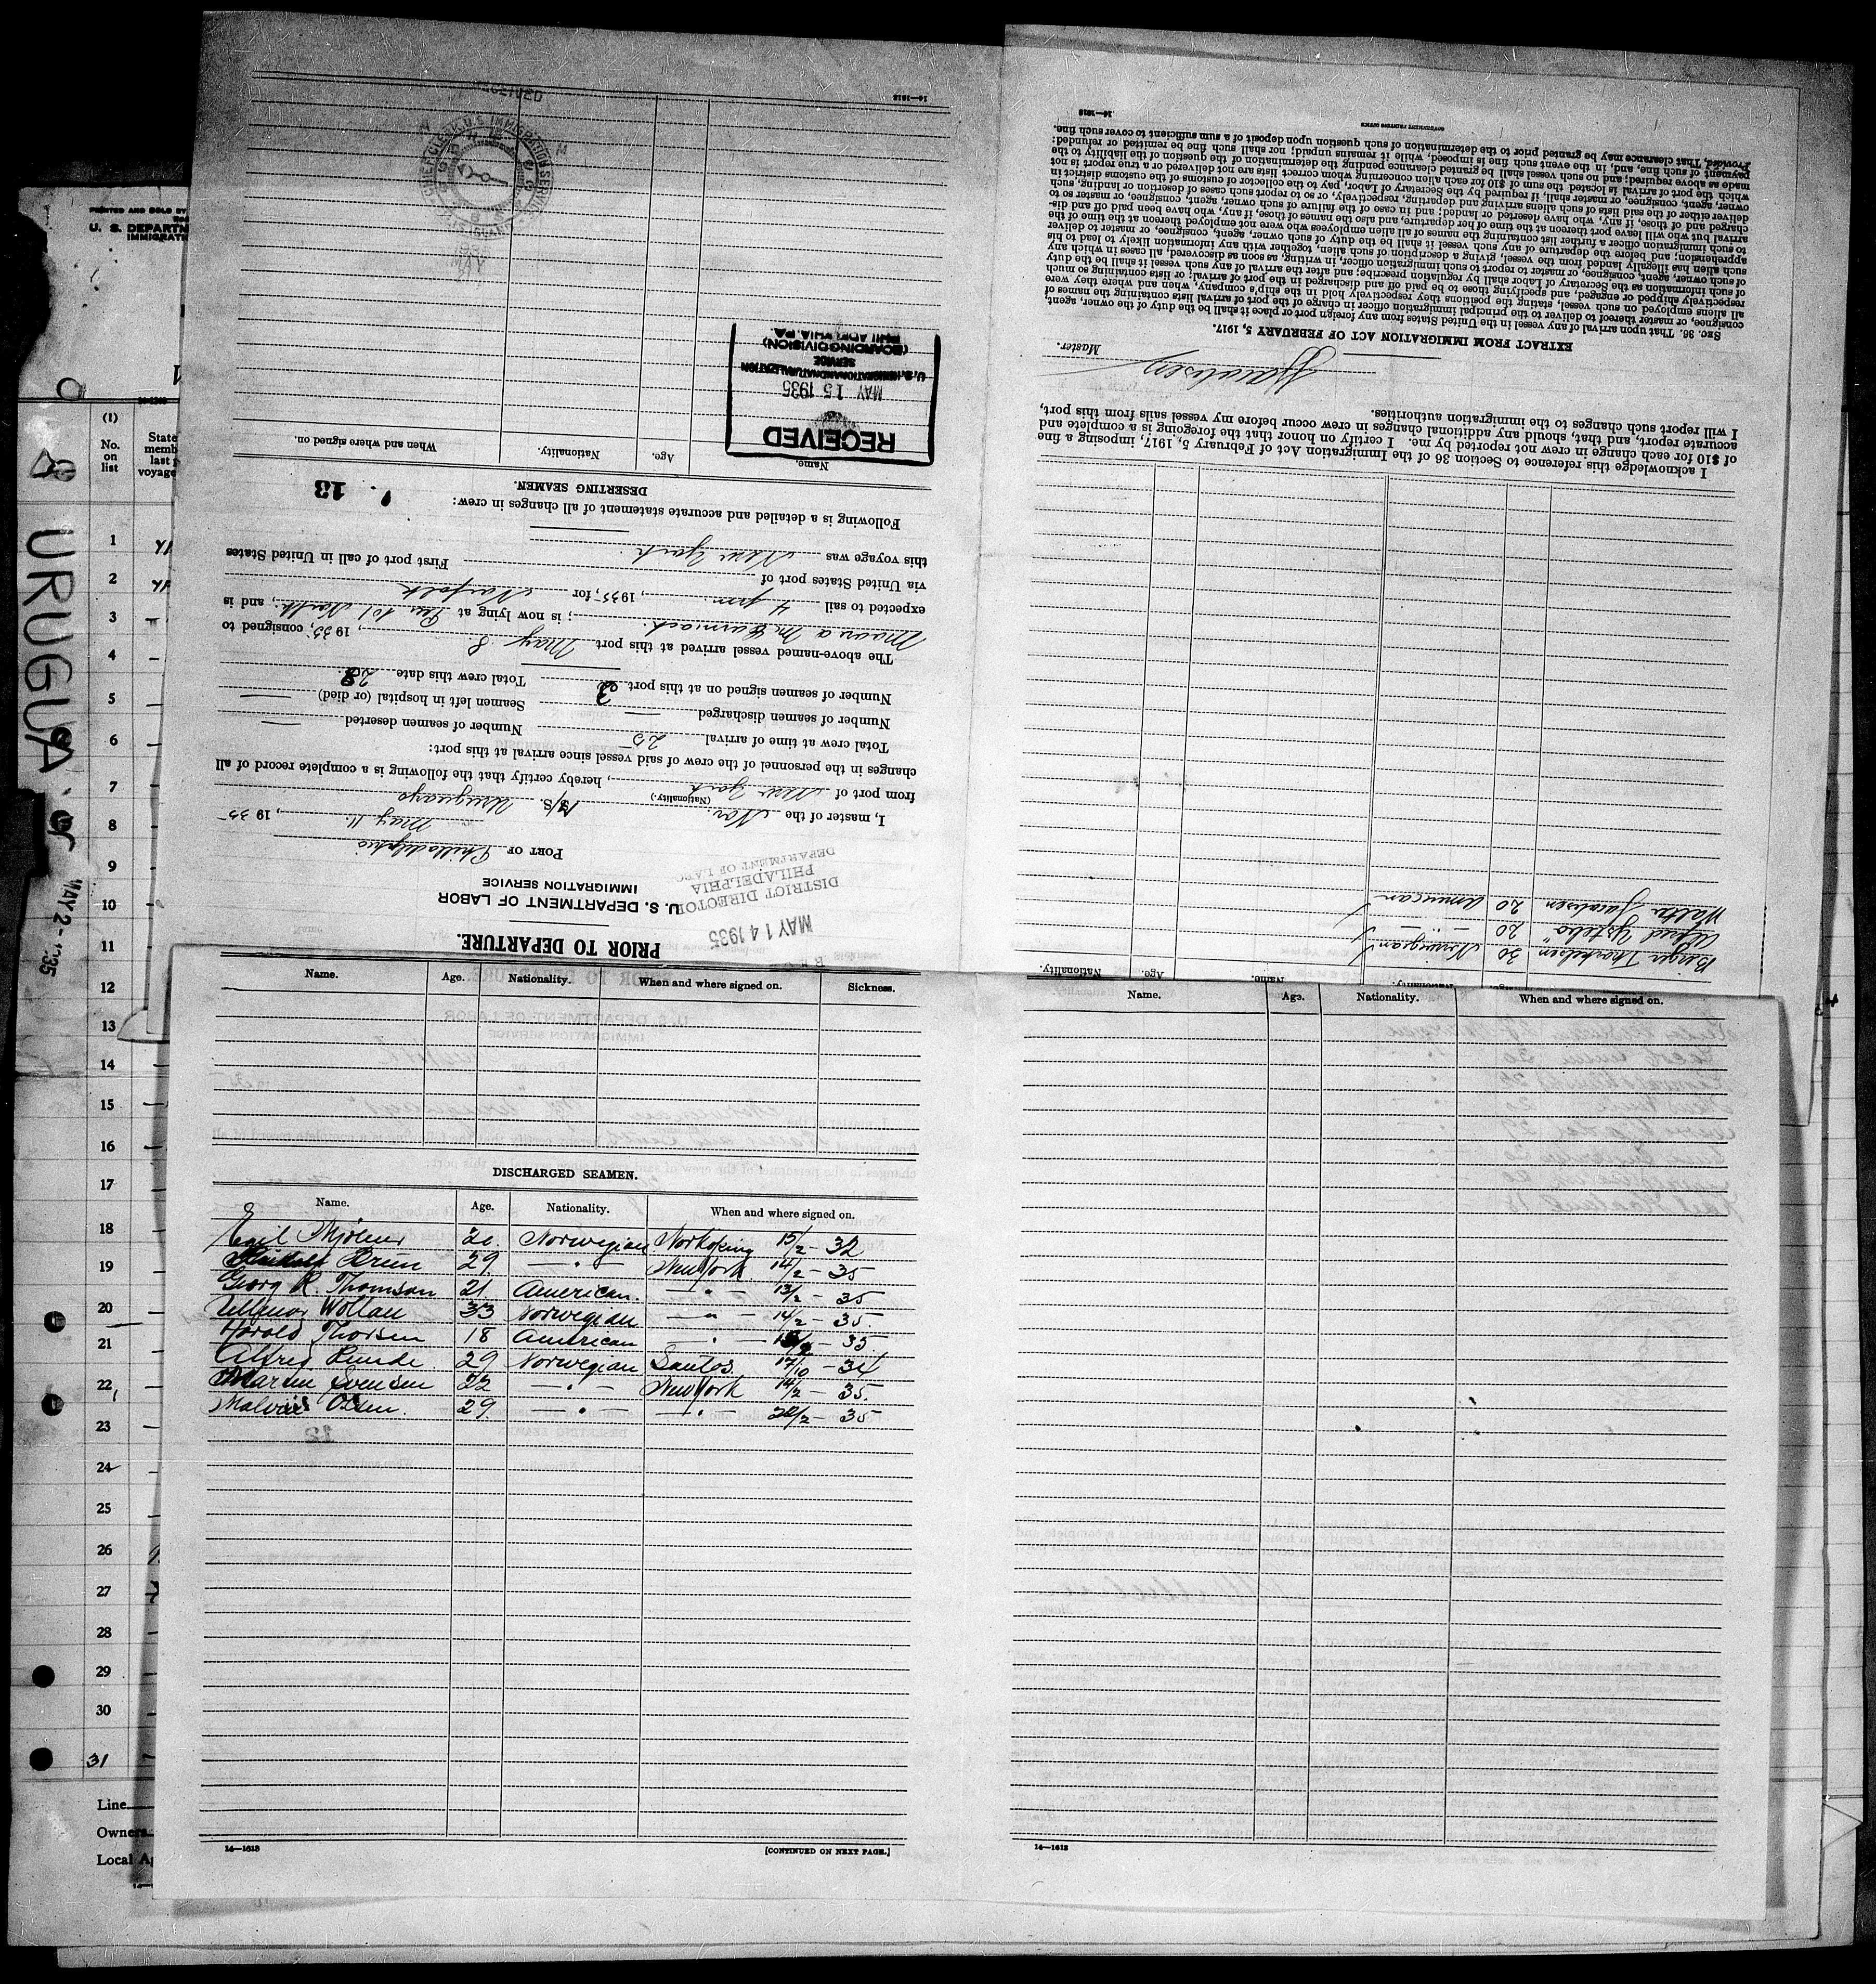 PRINTED AND SOLD BY
U. S. DEPARTM
IMMIGRAT
(1)
No.
on
list
State
memb
last
voyage
1
2
3
4
5
6
7
8
9
10
11
12
13
14
15
16
17
18
19
20
21
22
23
24
25
26
27
28
29
30
31
Line
Owners
Local Ag
URUGUA
MAY 2- 1935
PRIOR TO DEPARTURE.
U. S. DEPARTMENT OF LABOR
IMMIGRATION SERVICE
MAY 14 1935
DISTRICT DIRECTOR
PHILADELPHIA
DEPARTMENT OF LABO
PORT OF Philladelphia
May 11, 1935
I, master of the Nor. M/S. Uruguayo
(Nationality.)
from port of New York, hereby certify that the following is a complete record of all
changes in the personnel of the crew of said vessel since arrival at this port:
Total crew at time of arrival 25 Number of seamen deserted —
Number of seamen discharged — Seamen left in hospital (or died) —
Number of seamen signed on at this port 3 Total crew this date 28
The above-named vessel arrived at this port May 8, 1935, consigned to
Moore & McCormack; is now lying at Pier 101 North, and is
expected to sail 4 pm., 1935, for Norfolk
via United States port of First port of call in United States
this voyage was New York.
Following is a detailed and accurate statement of all changes in crew:
13
DESERTING SEAMEN.
Name. Age. Nationality. When and where signed on.
RECEIVED
MAY 15 1935
U.S. IMMIGRATION AND NATURALIZATION
SERVICE
(BOARDING DIVISION)
PHILADELPHIA, PA.
RECEIVED
MAY
14—1613
Berger Thorkelsen 30 Norwegian
Alfred 20 — " —
Walter Jacobsen 20 American
I acknowledge this reference to Section 36 of the Immigration Act of February 5, 1917, imposing a fine
of $10 for each change in crew not reported by me. I certify on honor that the foregoing is a complete and
accurate report, and that, should any additional changes in crew occur before my vessel sails from this port,
I will report such changes to the immigration authorities.
Master.
EXTRACT FROM IMMIGRATION ACT OF FEBRUARY 5, 1917.
SEC. 36. That upon arrival of any vessel in the United States from any foreign port or place it shall be the duty of the owner, agent,
consignee, or master thereof to deliver to the principal immigration officer in charge of the port of arrival lists containing the names of
all aliens employed on such vessel, stating the positions they respectively hold in the ship's company, when and where they were
respectively shipped or engaged, and specifying those to be paid off and discharged in the port of arrival; or lists containing so much
of such information as the Secretary of Labor shall by regulation prescribe; and after the arrival of any such vessel it shall be the duty
of such owner, agent, consignee, or master to report to such immigration officer, in writing, as soon as discovered, all cases in which any
such alien has illegally landed from the vessel, giving a description of such alien, together with any information likely to lead to his
apprehension; and before the departure of any such vessel it shall be the duty of such owner, agent, consignee, or master to deliver
to such immigration officer a further list containing the names of all alien employees who were not employed thereon at the time of the
arrival but who will leave port thereon at the time of her departure, and also the names of those, if any, who have been paid off and dis-
charged and of those, if any, who have deserted or landed; and in case of the failure of such owner, agent, consignee, or master so to
deliver either of the said lists of such aliens arriving and departing, respectively, or so to report such cases of desertion or landing, such
owner, agent, consignee, or master shall, if required by the Secretary of Labor, pay to the collector of customs of the customs district in
which the port of arrival is located the sum of $10 for each alien concerning whom correct lists are not delivered or a true report is not
made as above required; and no such vessel shall be granted clearance pending the determination of the question of the liability to the
payment of such fine, and, in the event such fine is imposed, while it remains unpaid; nor shall such fine be remitted or refunded:
Provided, That clearance may be granted prior to the determination of such question upon deposit of a sum sufficient to cover such fine.
GOVERNMENT PRINTING OFFICE
14—1613
Name. Age. Nationality. When and where signed on. Sickness.
DISCHARGED SEAMEN.
Name. Age. Nationality. When and where signed on.
Egil Mjölner 20. Norwegian Norköping 15/2 - 32
Brun 29 — " — New York 14/2 - 35
Georg R. Thomson 21 American. — " — 13/2 - 35
Wollan 33 Norwegian — " — 14/2 - 35.
Harold Thorsen 18 American — " — - 35.
Alfred Runde 29 Norwegian Santos. 17/10 - 34
Martin Svensen 22 — " — New York 14/2 - 35.
Olsen. 29 — " — — " — 20/2 - 35
14—1613
[CONTINUED ON NEXT PAGE.]
Name. Age. Nationality. When and where signed on.
14—1613